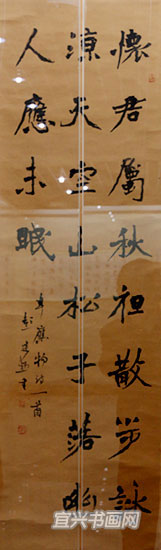 懷君屬秋散步詠
涼天空山松子落幽
人應未眠
韋應物詩一首
宜兴书画网